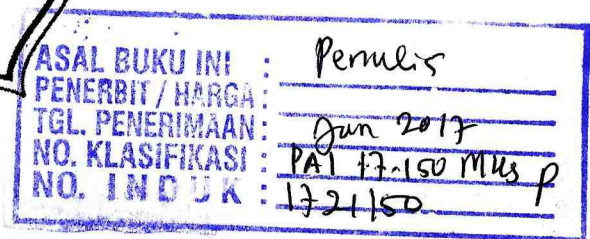 ASAL BUKU INI : Penulis
PENERBIT / HARGA :
TGL. PENERIMAAN : Jun 2017
NO. KLASIFIKASI : PAI 17.150 MUS p
NO. INDUK : 1721150